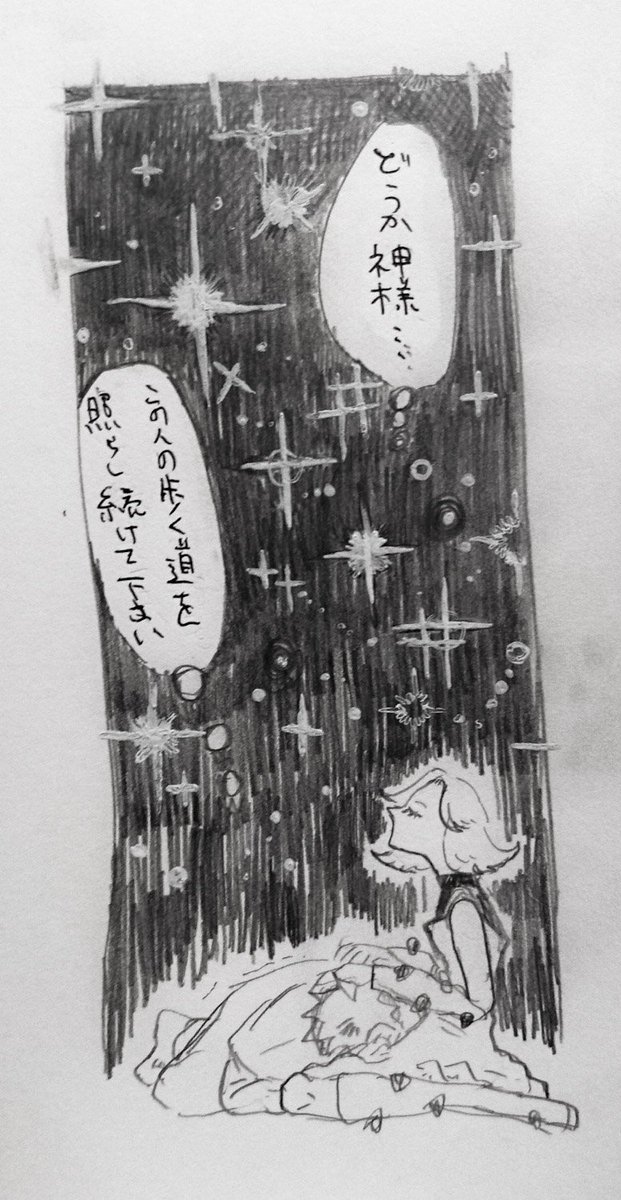 どうか
神様…
この人の歩く道を
照らし続けて下さい